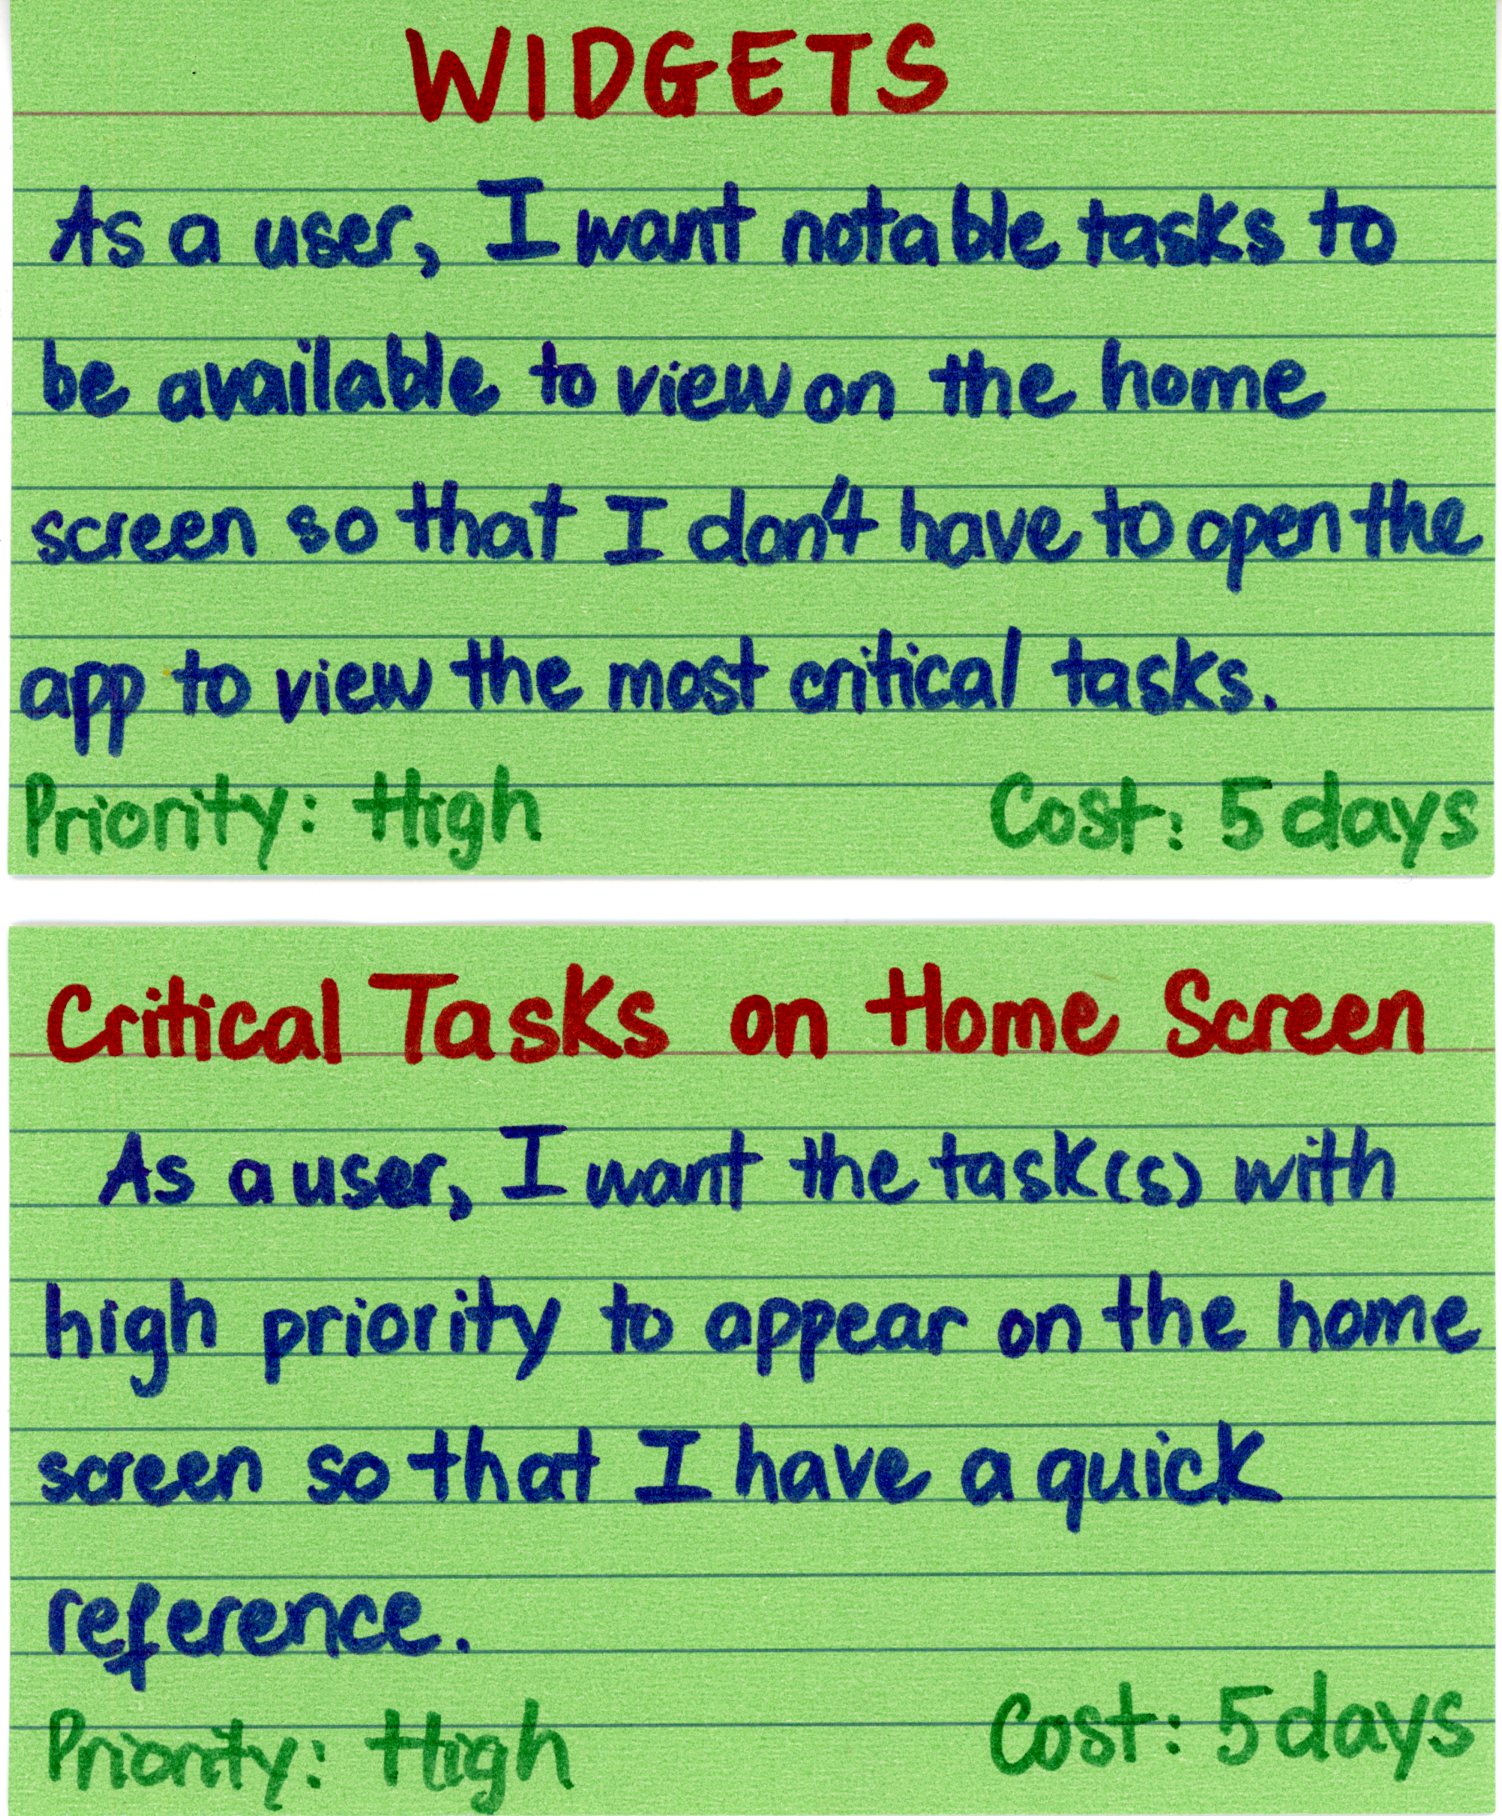 WIDGETS
As a user, I want notable tasks to
be available to view on the home
screen so that I don't have to open the
app to view the most critical tasks.
Priority: High Cost: 5 days
Critical Tasks on Home Screen
As a user, I want the task(s) with
high priority to appear on the home
screen so that I have a quick
reference.
Priority: High Cost: 5 days